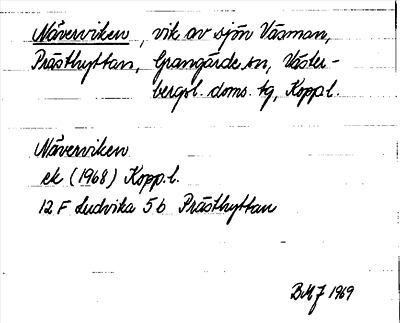 Näverviken, vik av sjön Väsman,
Prästhyttan, Grangärde sn, Väster-
bergsl. doms. tg, Kopp.l.
Näverviken
ek (1968) Kopp.l.
12 F Ludvika 5 b Prästhyttan
BMJ 1969